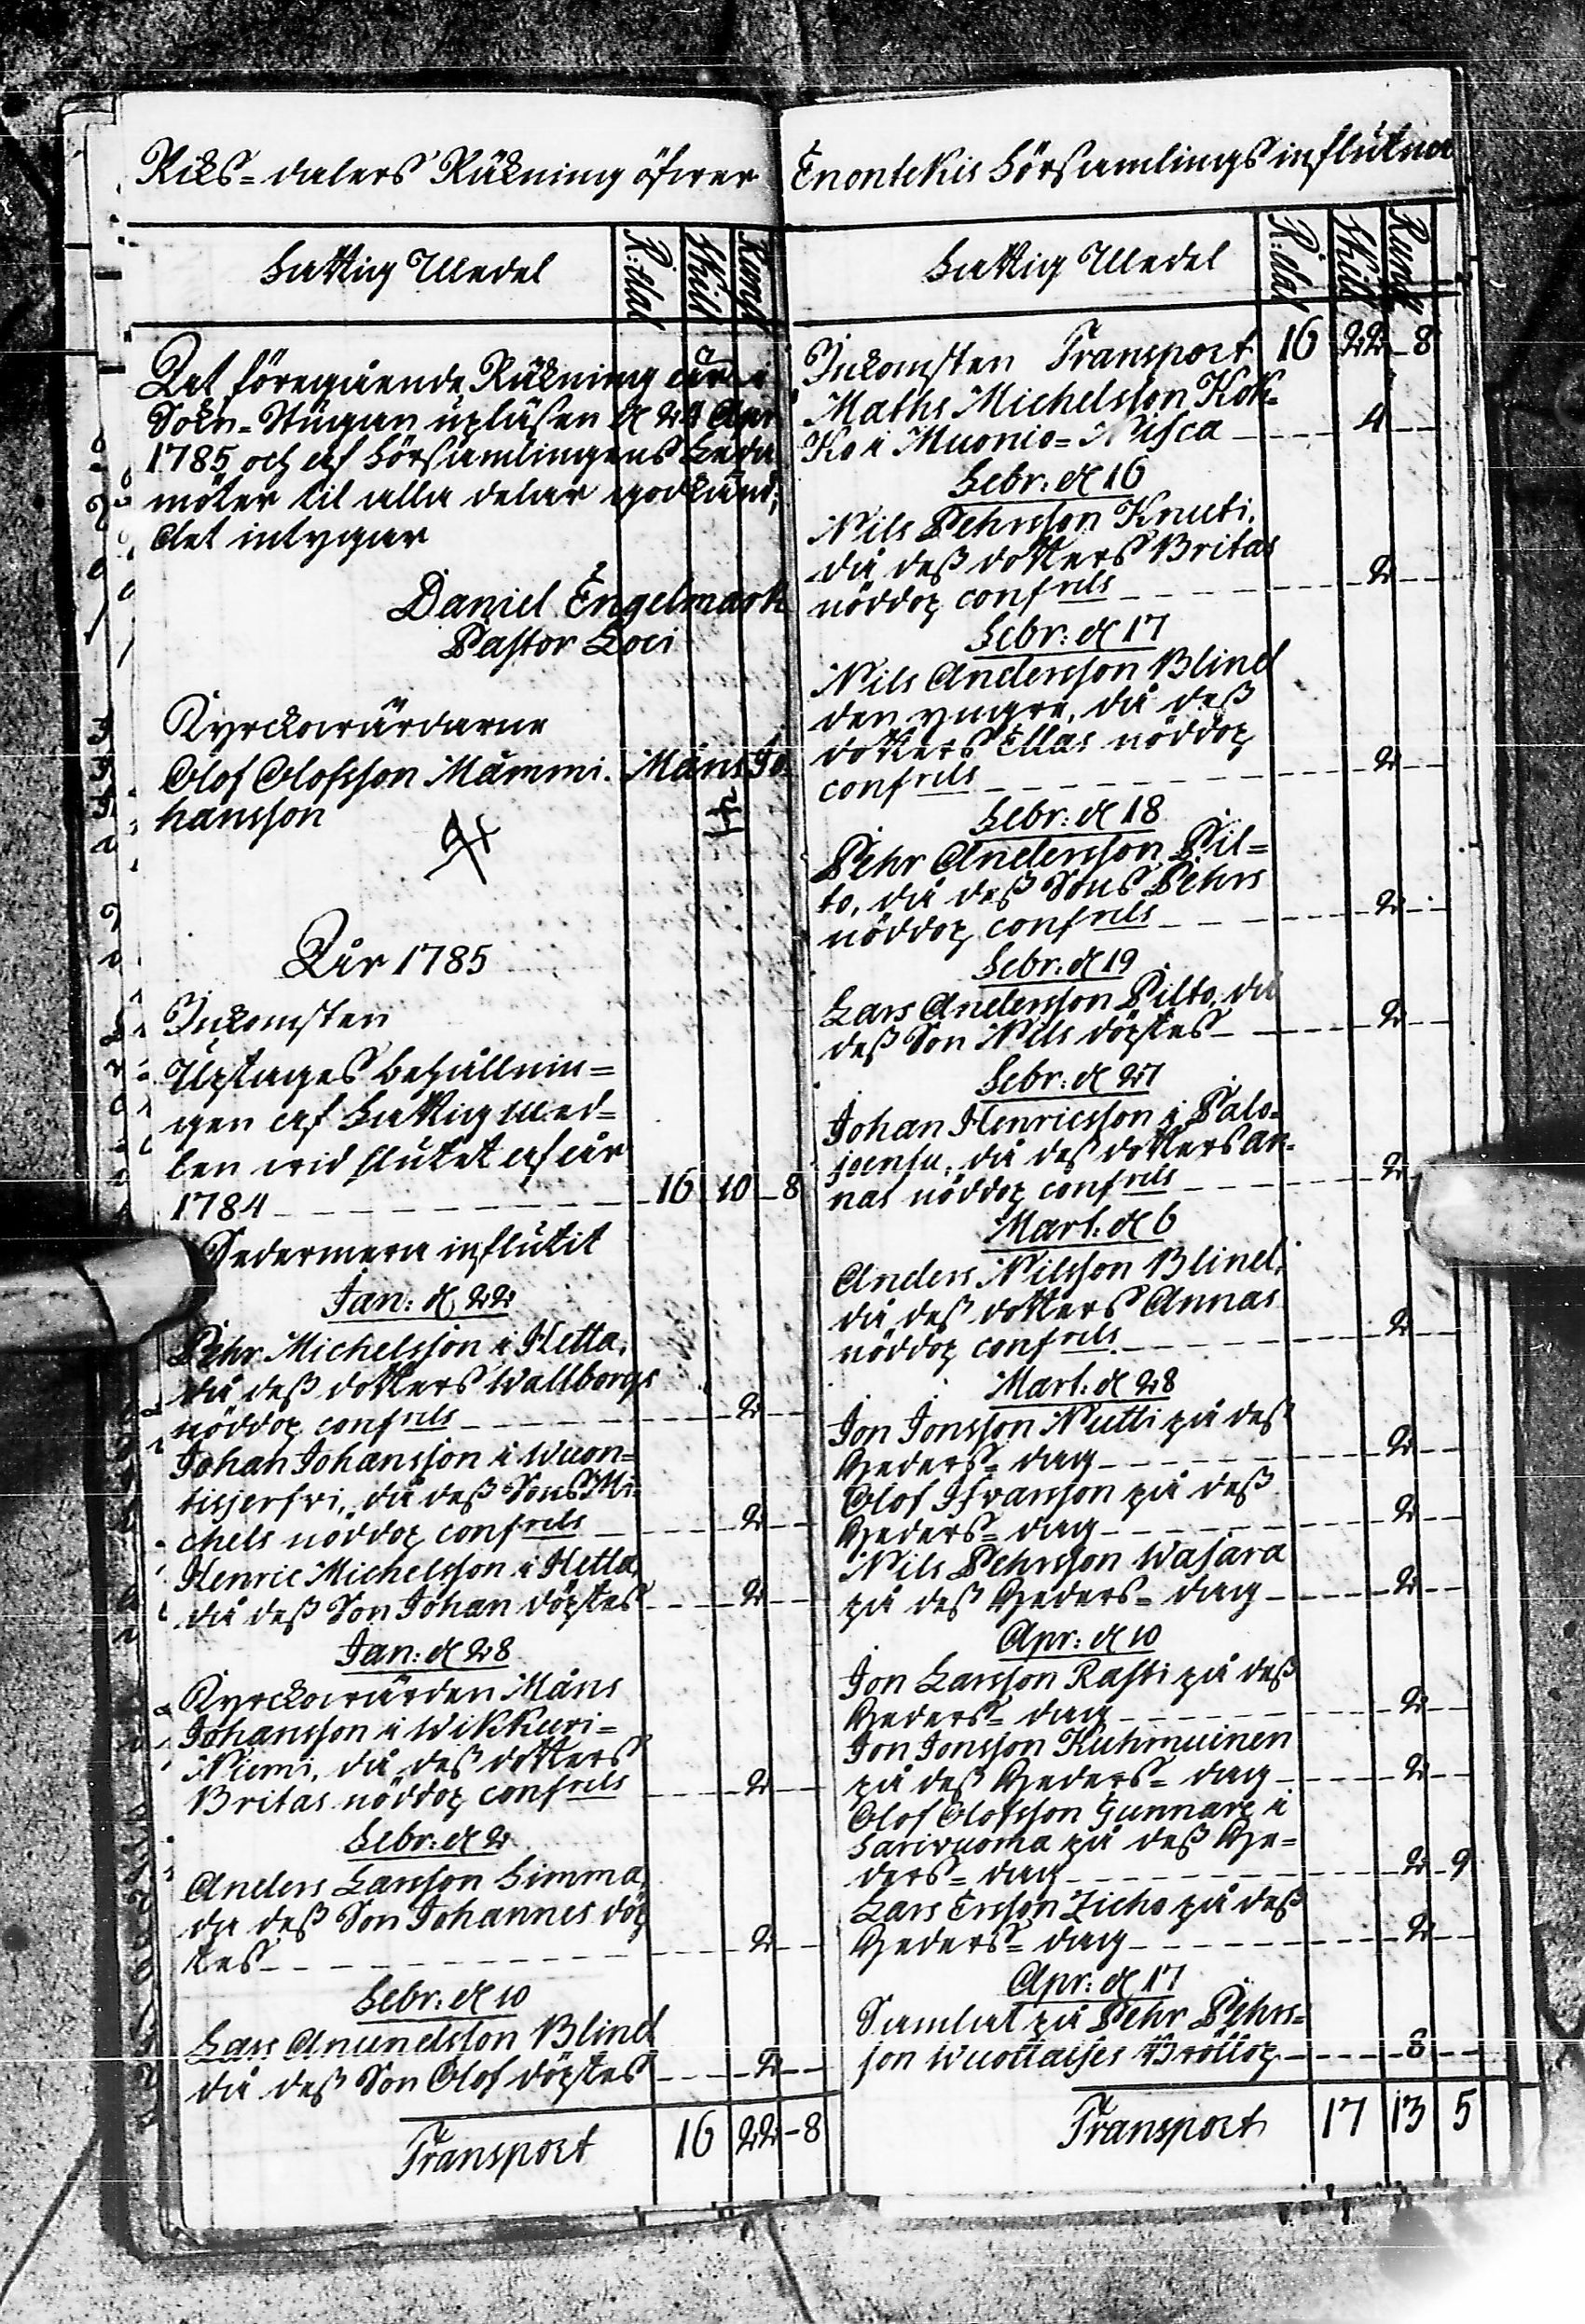 Riks-dalers Räkning öfwer
Fattig Medel R:dal Skill Runst
At föregående Räkning är i
Sokn-Stugan upläsen d 24 Apr
1785 och af Församlingens Leda
möter til alla delar godkänd;
det intygar
Daniel Engelmark
Pastor Loci
Kyrckowärdarne
Olof Olofsson Mämmi. Måns Jo-
hansson
År 1785
Inkomsten
Uptages behållnin-
gen af Fattig Med-
len wid slutet af år
1784 16 10 - 8
Sedermera influtit
Jan: d 22
Pehr Michelsson i Hetta,
då deß dotters Wallborgs
nöddop confrels 2
Johan Johansson i Wuon-
tisjerfvi, då deß Sons Mi-
chels nöddop confrels 2
Henric Michelsson i Hetta,
då deß Son Johan döptes 2
Jan: d 28
Kyrckowärden Måns
Johansson i Wikkuri-
Niemi, då deß dotters
Britas nöddop confrels 2
Febr: d 2
Anders Larsson Simma,
då deß Son Johannes döp
tes 2
Febr: d 10
Lars Amundsson Blind
då deß Son Olof döptes 2
Transport 16 22 - 8
Enontekis Församlings influtna
Fattig Medel R:dal Skill Runst
Inkomsten Transport 16 22 - 8
Maths Michelsson Kok-
Ko i Muonio-Nisca 4
Febr: d 16
Nils Pehrsson Knuti,
då deß dotters Britas
nöddop confrels 2
Febr: d 17
Nils Andersson Blind
den yngre, då deß
dotters Ellas nöddop
confrels 2
Febr: d 18
Pehr Andersson Pil-
to, då deß Sons Pehrs
nöddop confrels 2
Febr: d 19
Lars Andersson Pilto, då
deß Son Nils döptes 2
Febr: d 27
Johan Henricsson i Palo-
joensu, då deß dotters An-
nas nöddop confrels 2
Mart: d 6
Anders Nilsson Blind,
då deß dotters Annas
nöddop confrels 2
Mart: d 28
Jon Jonsson Nutti på deß
Heders-dag 2
Olof Ifvarson på deß
Heders-dag 2
Nils Pehrsson Wasara
på deß Heders-dag 2
Apr: d 10
Jon Larsson Rasti på deß
Heders-dag 2
Jon Jonsson Kuhmuinen
på deß Heders-dag 2
Olof Olofsson Gunnare i
Sarivuoma på deß He-
ders-dag 2 - 9
Lars Ersson Zicho på deß
Heders-dag 2
Apr: d 17
Samlat på Pehr Pehrs-
son Wuottaises Bröllop 8
Transport 17 13 5